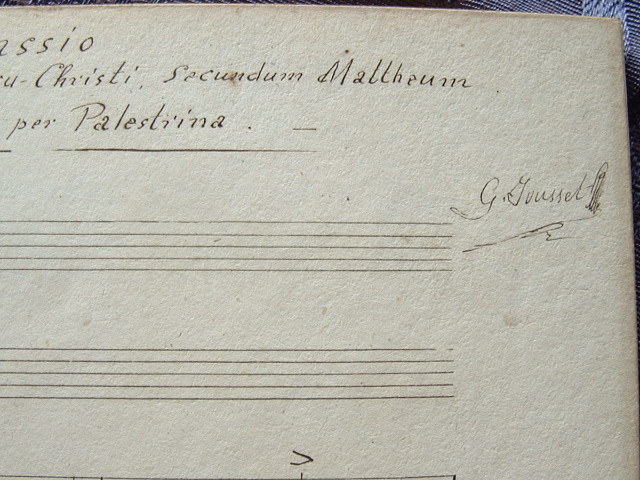 assio
su-Christi, secundum Mattheum
per Palestrina.
G. Jousset